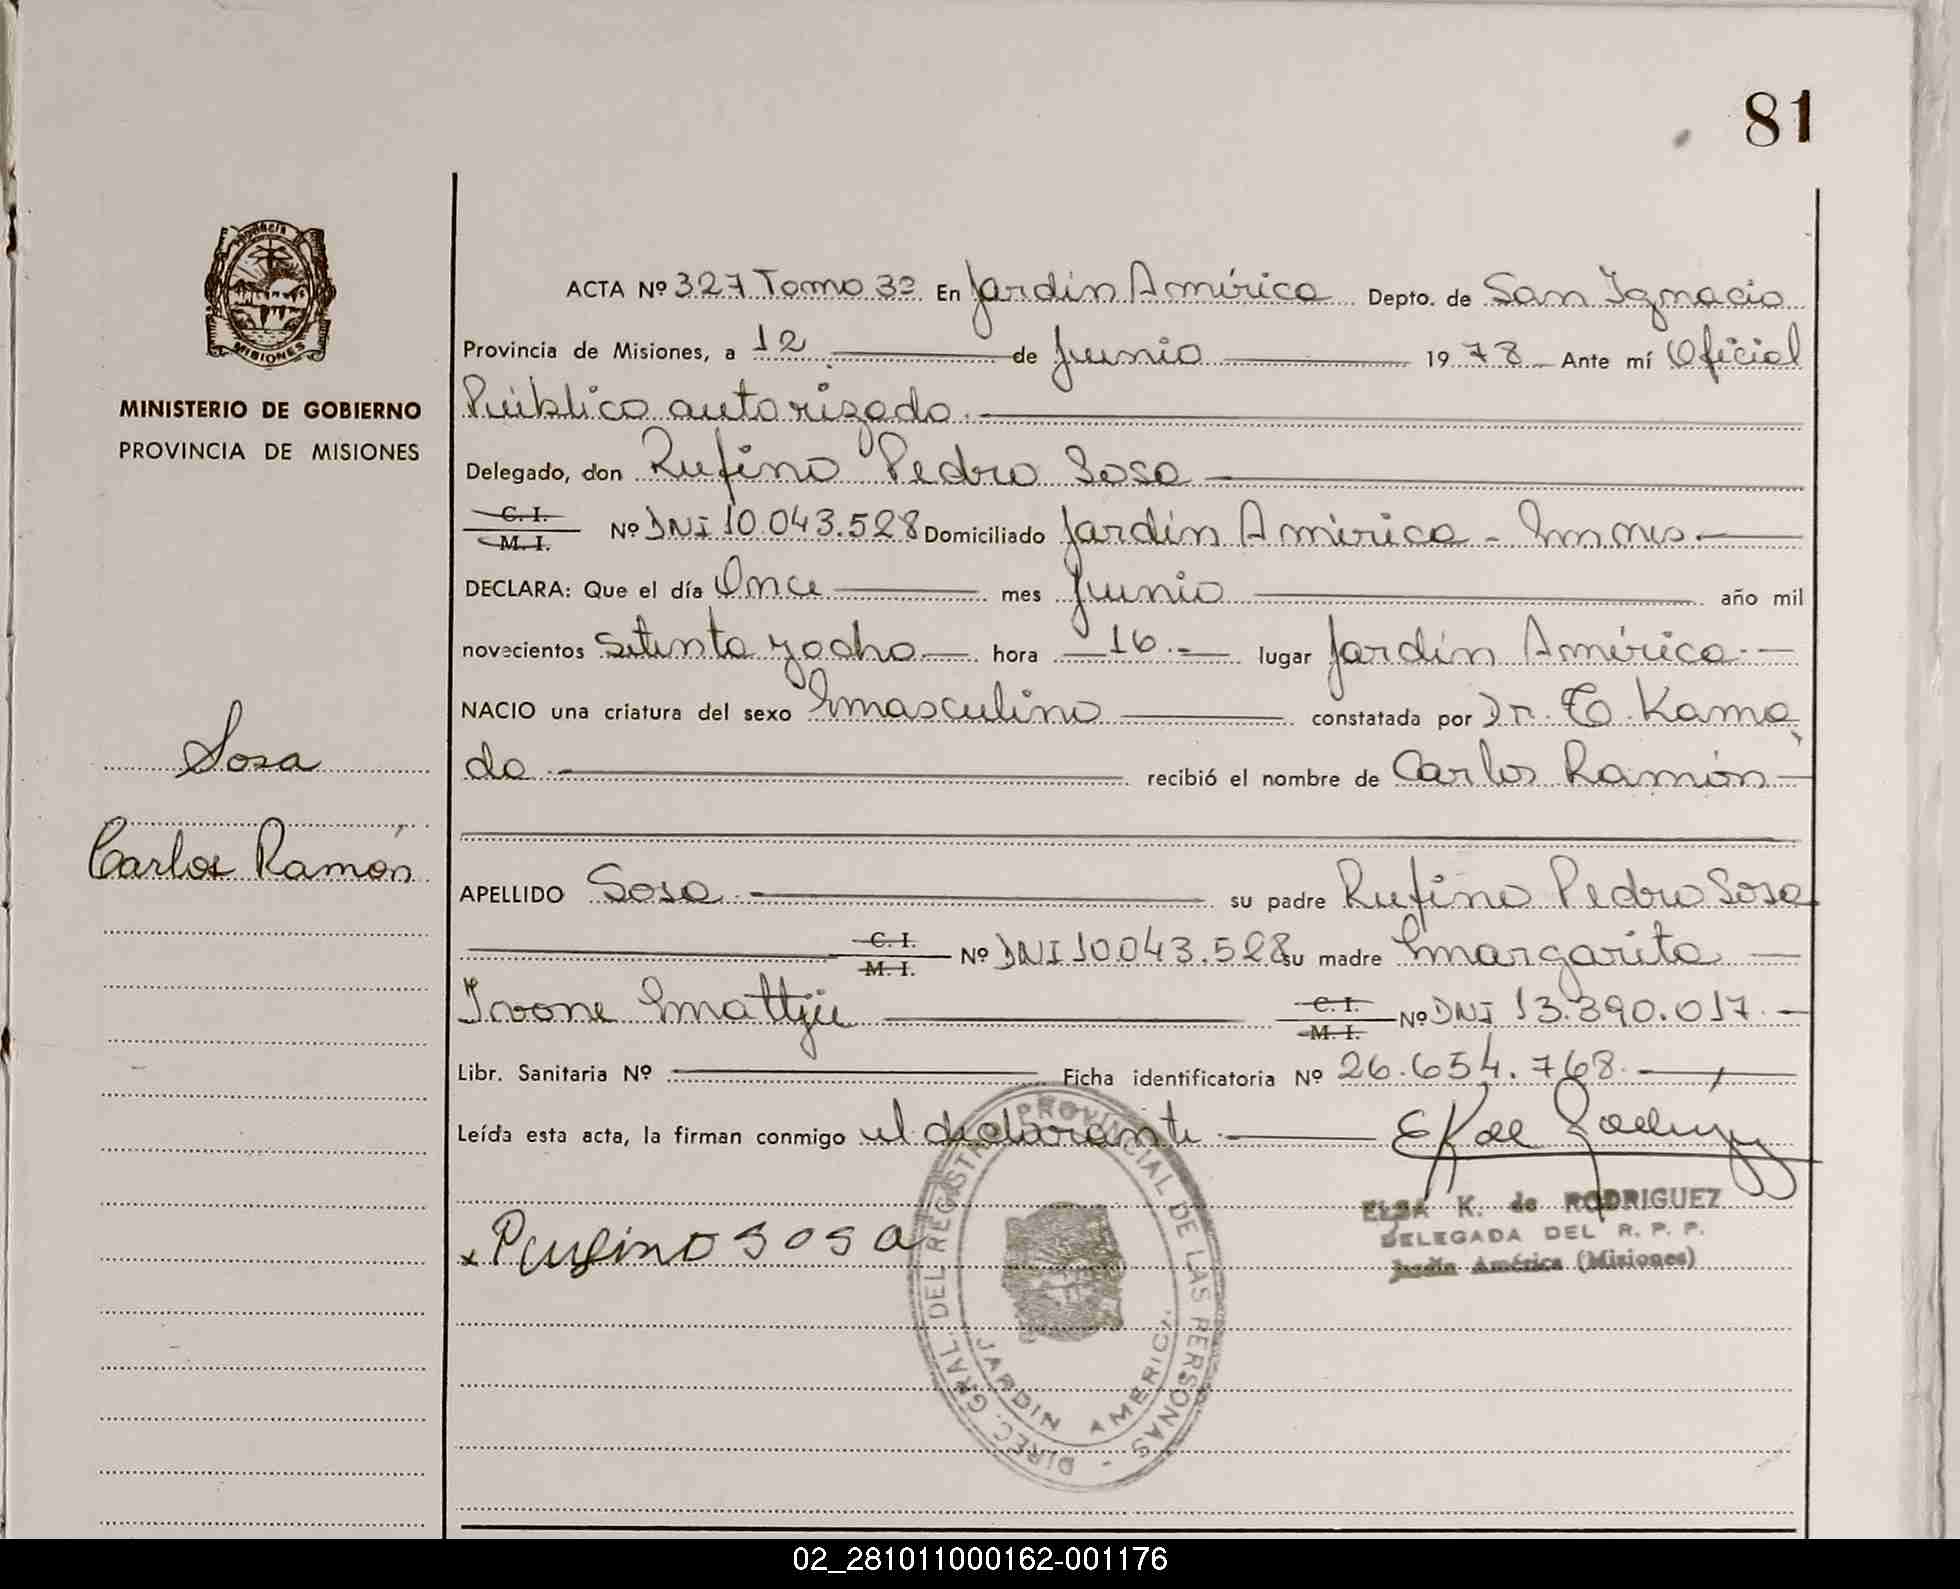 81
PROVINCIA
MISIONES
MINISTERIO DE GOBIERNO
PROVINCIA DE MISIONES
Sosa
Carlos Ramón
ACTA Nº 327 Tomo 3º En Jardín América Depto. de San Ignacio
Provincia de Misiones, a 12 de Junio 1978 Ante mí Oficial
Público autorizado.
Delegado, don Rufino Pedro Sosa
C. I.
M. I. Nº DNI 10.043.528 Domiciliado Jardín América - Mnes.
DECLARA: Que el día Once mes Junio año mil
novecientos setenta y ocho hora 16.- lugar Jardín América.-
NACIO una criatura del sexo masculino constatada por Dr. T. Kama
da.- recibió el nombre de Carlos Ramón
APELLIDO Sosa su padre Rufino Pedro Sosa
C. I.
M. I. Nº DNI 10.043.528 su madre Margarita
Ivone C. I.
M. I. Nº DNI 13.390.017.-
Libr. Sanitaria Nº Ficha identificatoria Nº 26.654.768.-
Leída esta acta, la firman conmigo el declarante.-
x Rufino SOSA
ELSA K. de RODRIGUEZ
DELEGADA DEL R. P. P.
Jardín América (Misiones)
DIREC. GRAL. DEL REGISTRO PROVINCIAL DE LAS PERSONAS -
JARDIN AMERICA
02_281011000162-001176